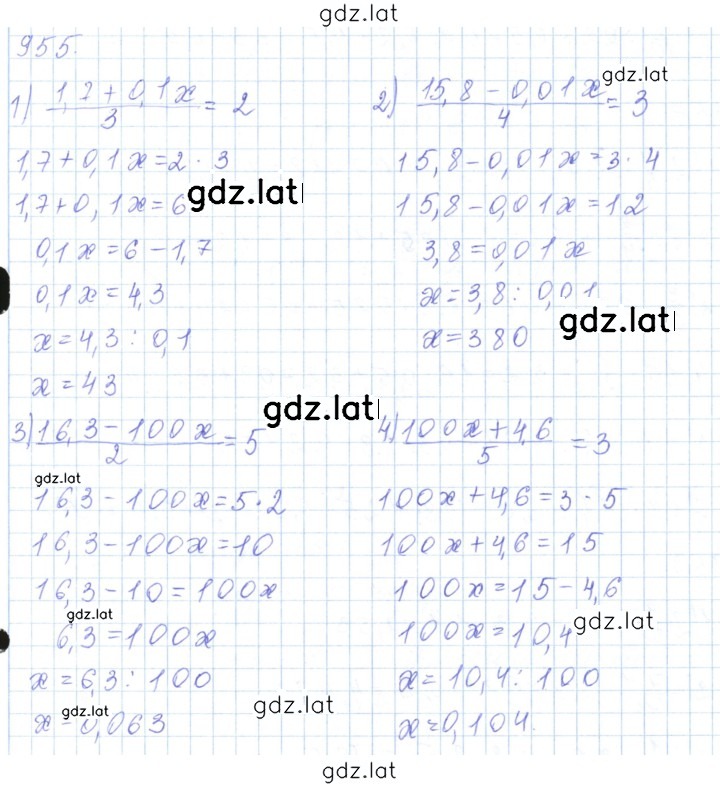 gdz.lat
955.
gdz.lat
1) (1,7 + 0,1x)/3 = 2
1,7 + 0,1x = 2 · 3
1,7 + 0,1x = 6
gdz.lat
0,1x = 6 − 1,7
0,1x = 4,3
x = 4,3 : 0,1
x = 43
2) (15,8 − 0,01x)/4 = 3
15,8 − 0,01x = 3 · 4
15,8 − 0,01x = 12
3,8 = 0,01x
x = 3,8 : 0,01
gdz.lat
x = 380
gdz.lat
3) (16,3 − 100x)/2 = 5
gdz.lat
16,3 − 100x = 5 · 2
16,3 − 100x = 10
16,3 − 10 = 100x
gdz.lat
6,3 = 100x
x = 6,3 : 100
gdz.lat
x = 0,063
4) (100x + 4,6)/5 = 3
100x + 4,6 = 3 · 5
100x + 4,6 = 15
100x = 15 − 4,6
100x = 10,4
gdz.lat
x = 10,4 : 100
gdz.lat
x = 0,104.
gdz.lat